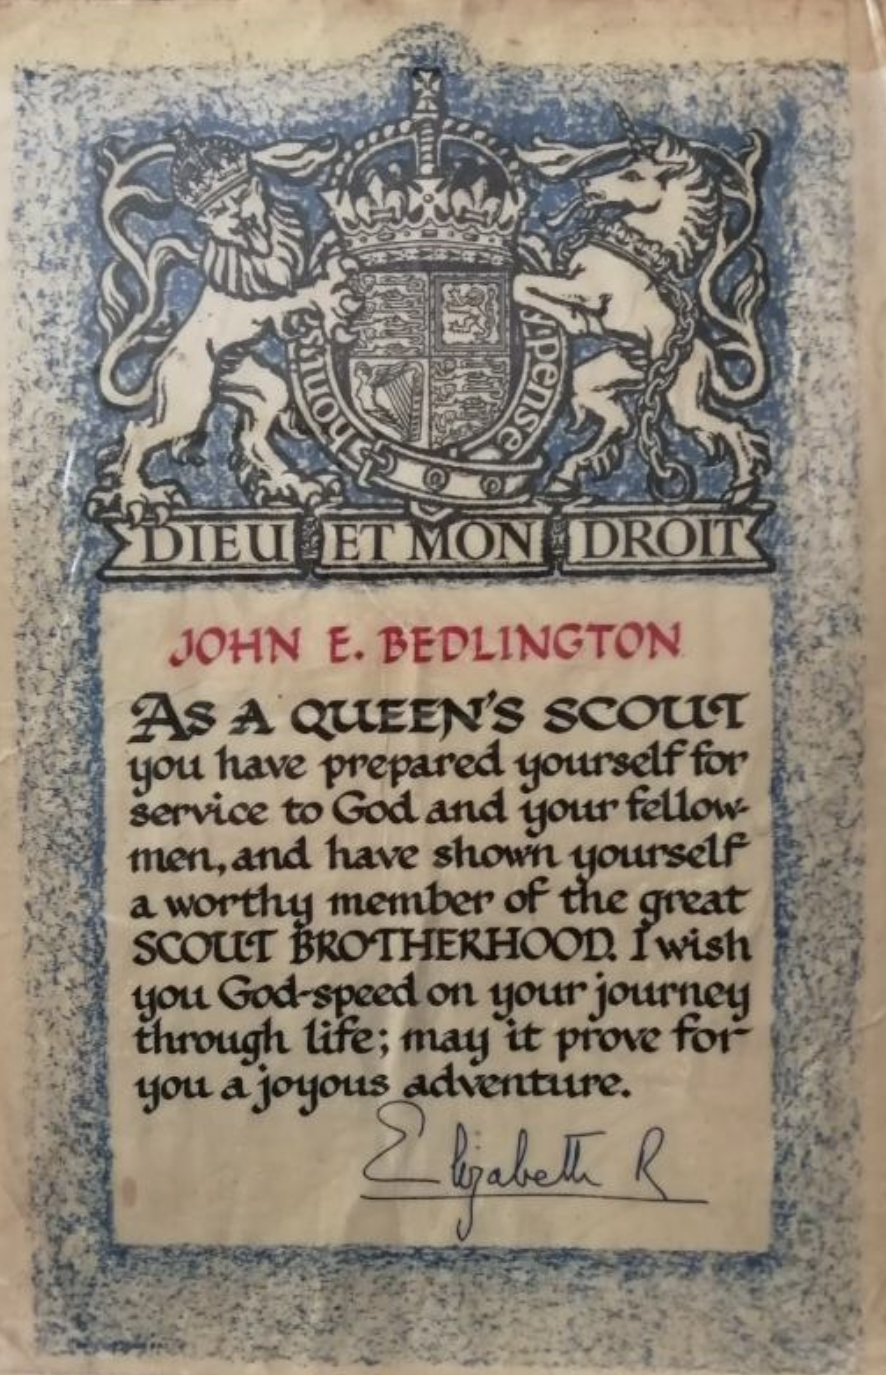 honi soit
pense
DIEU ET MON DROIT
JOHN E. BEDLINGTON
AS A QUEEN'S SCOUT
you have prepared yourself for
service to God and your fellow-
men, and have shown yourself
a worthy member of the great
SCOUT BROTHERHOOD. I wish
you God-speed on your journey
through life; may it prove for
you a joyous adventure.
Elizabeth R